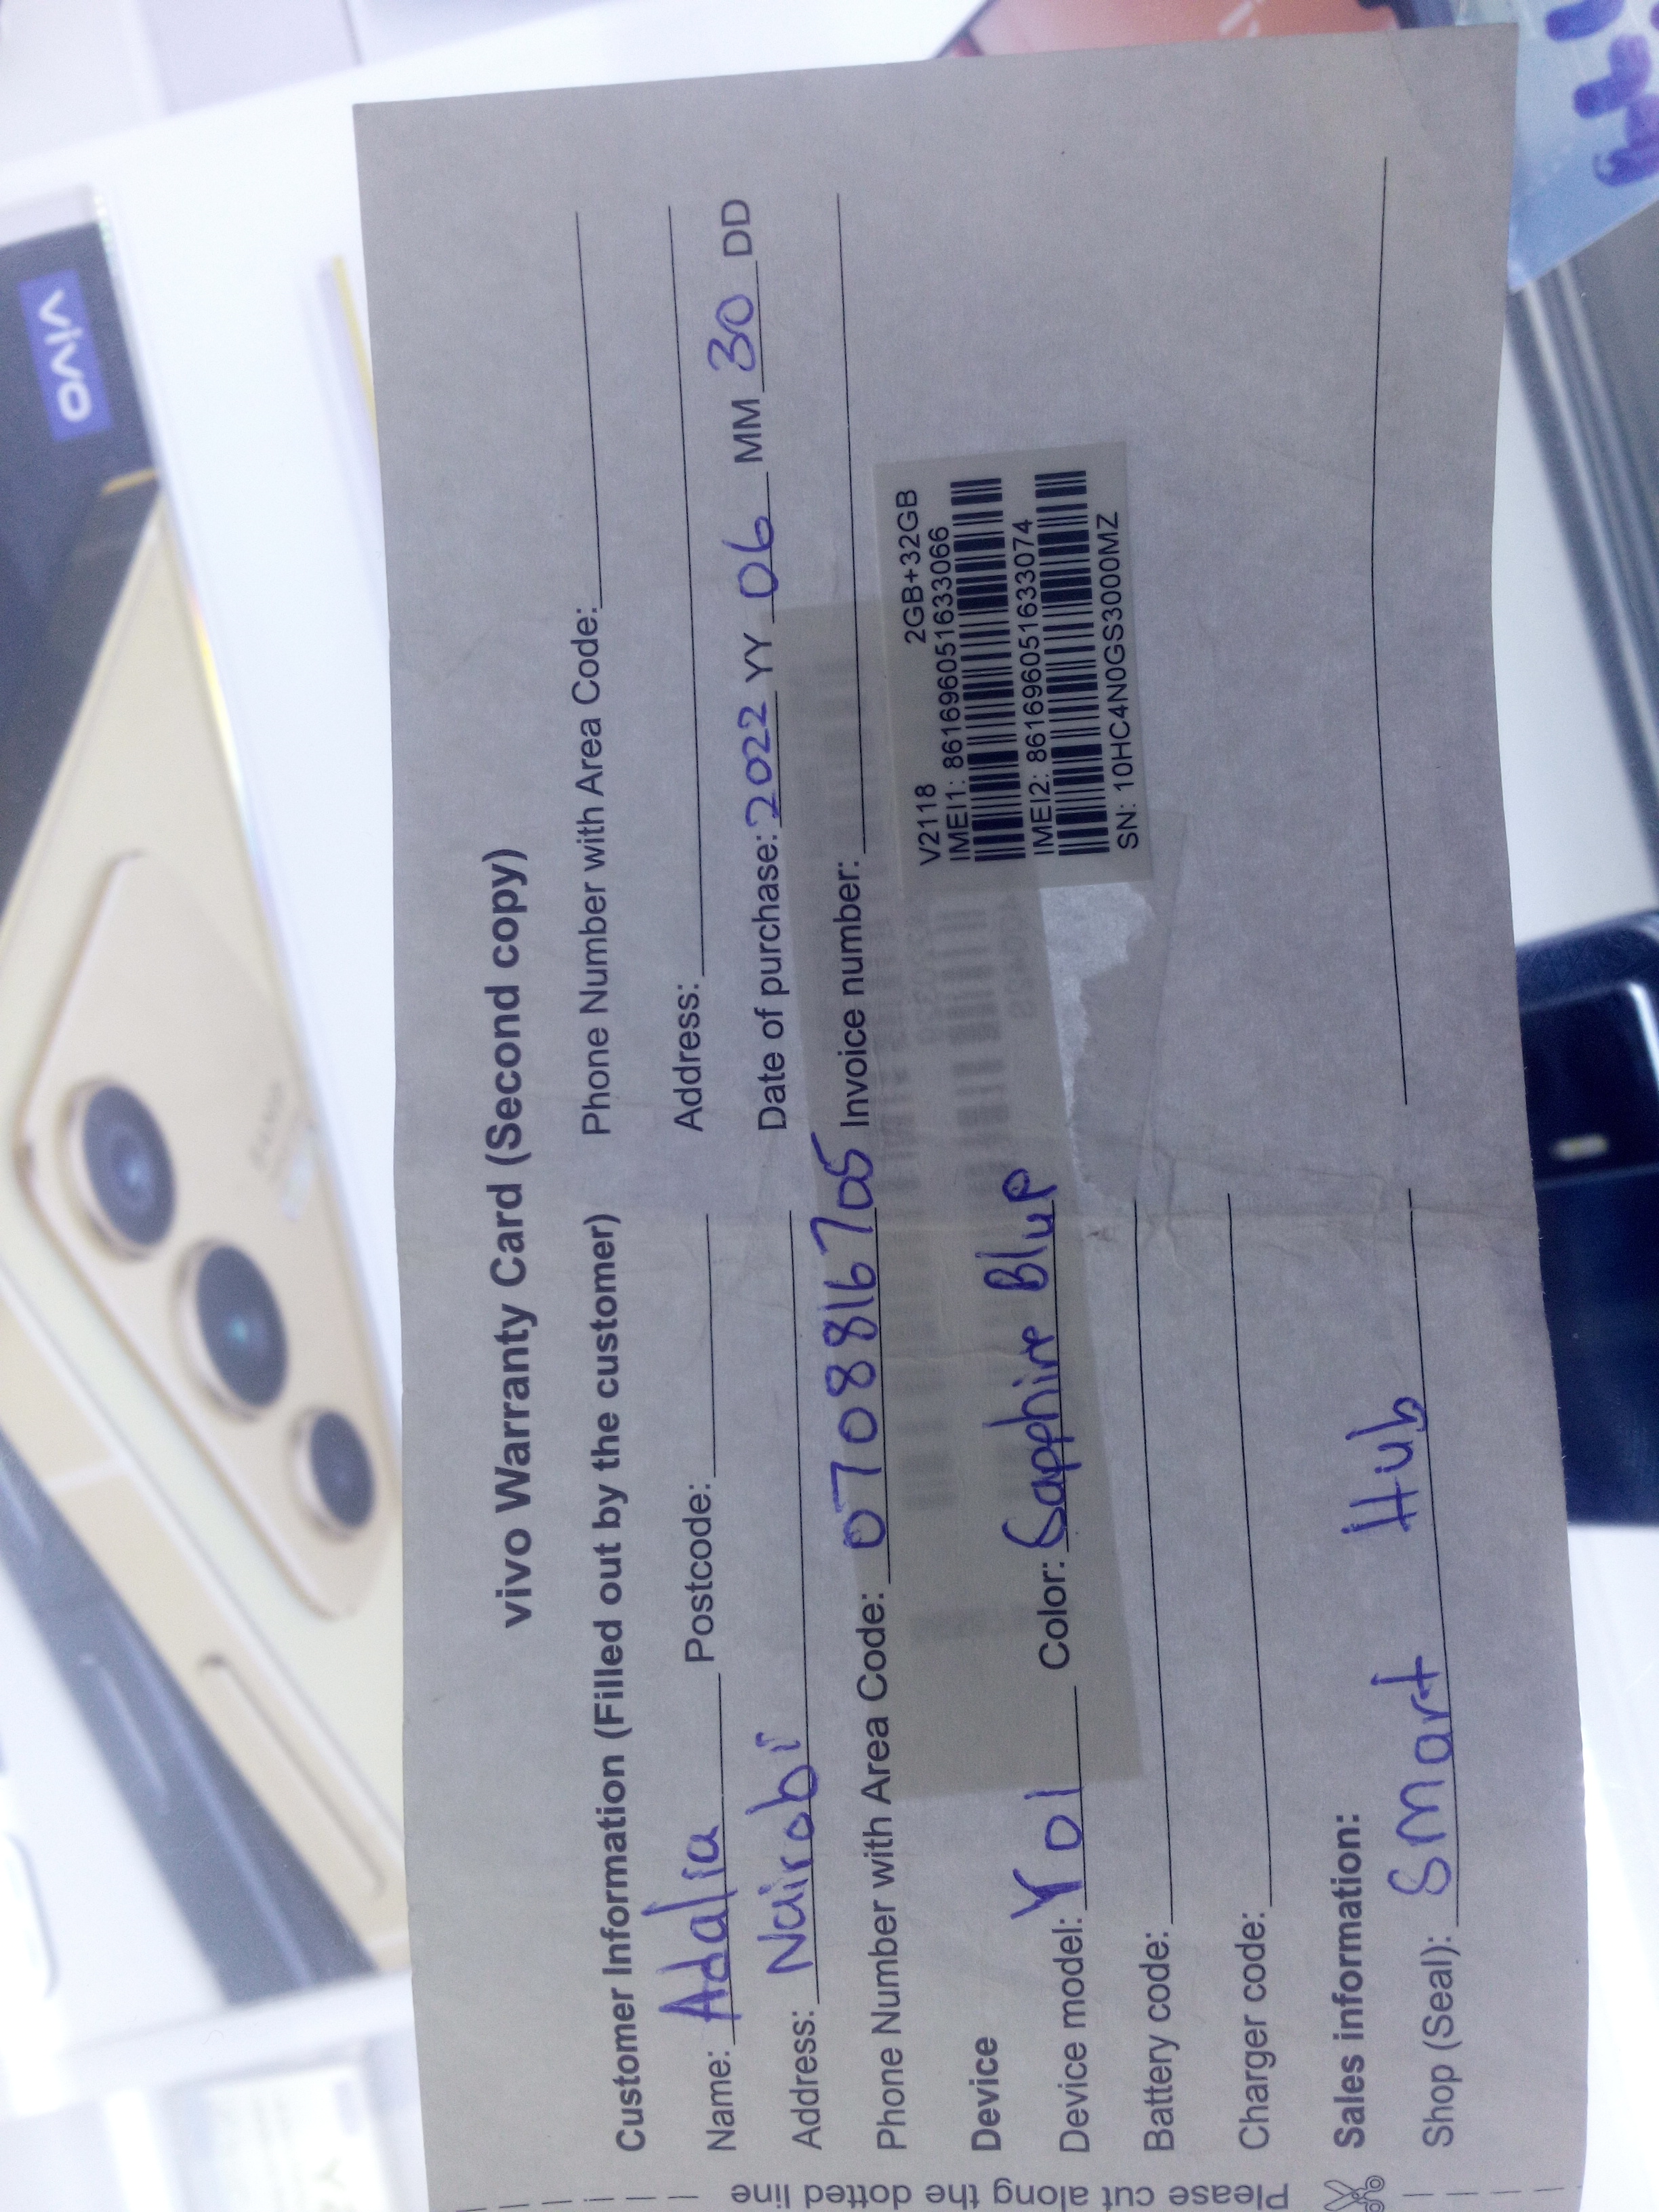 vivo
vivo Warranty Card (Second copy)
Customer Information (Filled out by the customer)
Name: Adalia Postcode:
Address: Nairobi
Phone Number with Area Code: 0708816705
Device
Device model: Y01 Color: Sapphire Blue
Battery code:
Charger code:
Sales information:
Shop (Seal): Smart Hub
Phone Number with Area Code:
Address:
Date of purchase: 2022 YY 06 MM 30 DD
Invoice number:
V2118 2GB+32GB
IMEI1: 861696051633066
IMEI2: 861696051633074
SN: 10HC4N0GS3000MZ
Please cut along the dotted line